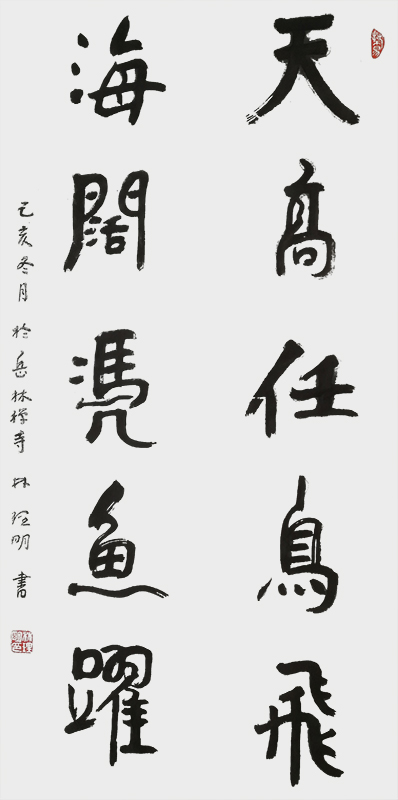 天高任鳥飛
海闊凭魚躍
己亥冬月 於岳林禅寺 林 明 書